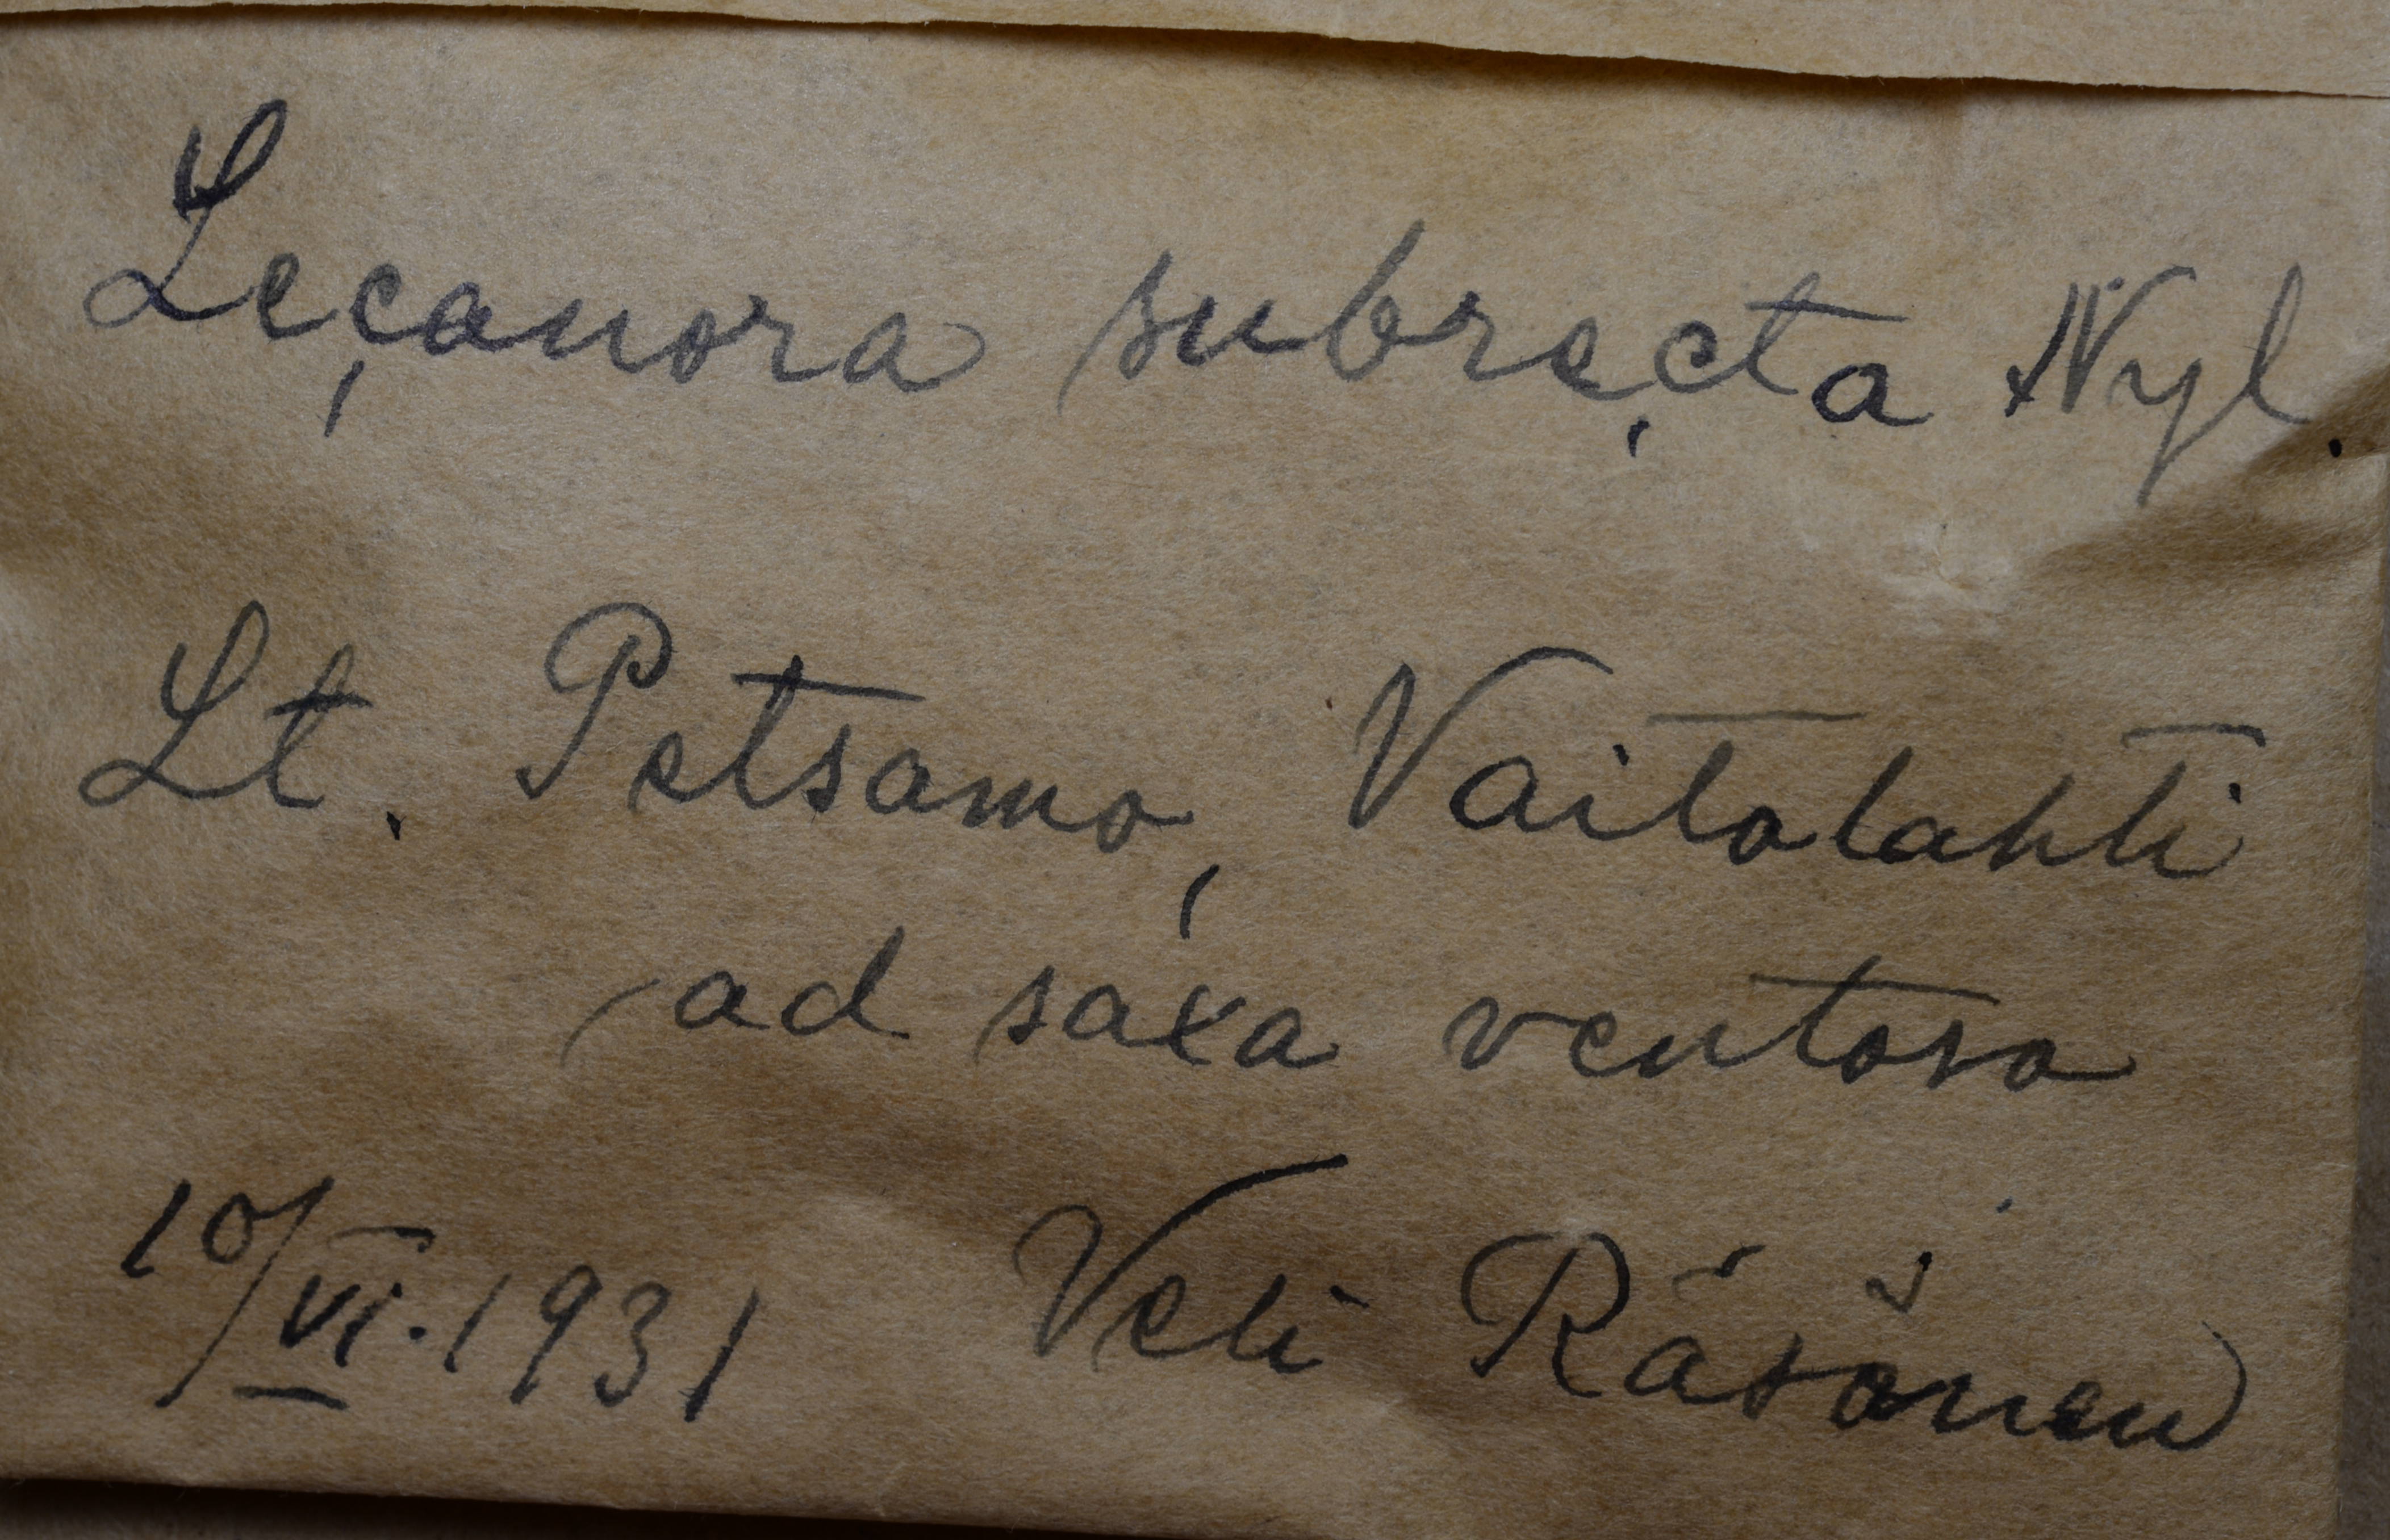 Lecanora subrecta Nyl.
Lt. Petsamo, Vaitolahti
ad saxa ventosa
10/VI.1931 Veli Räsänen